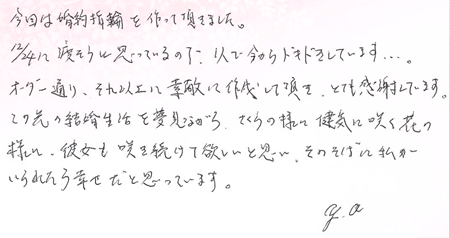 今回は婚約指輪を作って頂きました。
12/24に渡そうと思っているので、1人で今からドキドキしています…。
オーダー通り、それ以上に素敵に作成して頂き、とても感謝しています。
この先の結婚生活を夢見ながら、さくらの様に健気に咲く花の
様に、彼女も咲き続けて欲しいと思い、そのそばに私が
いられたら幸せだと思っています。
y.a